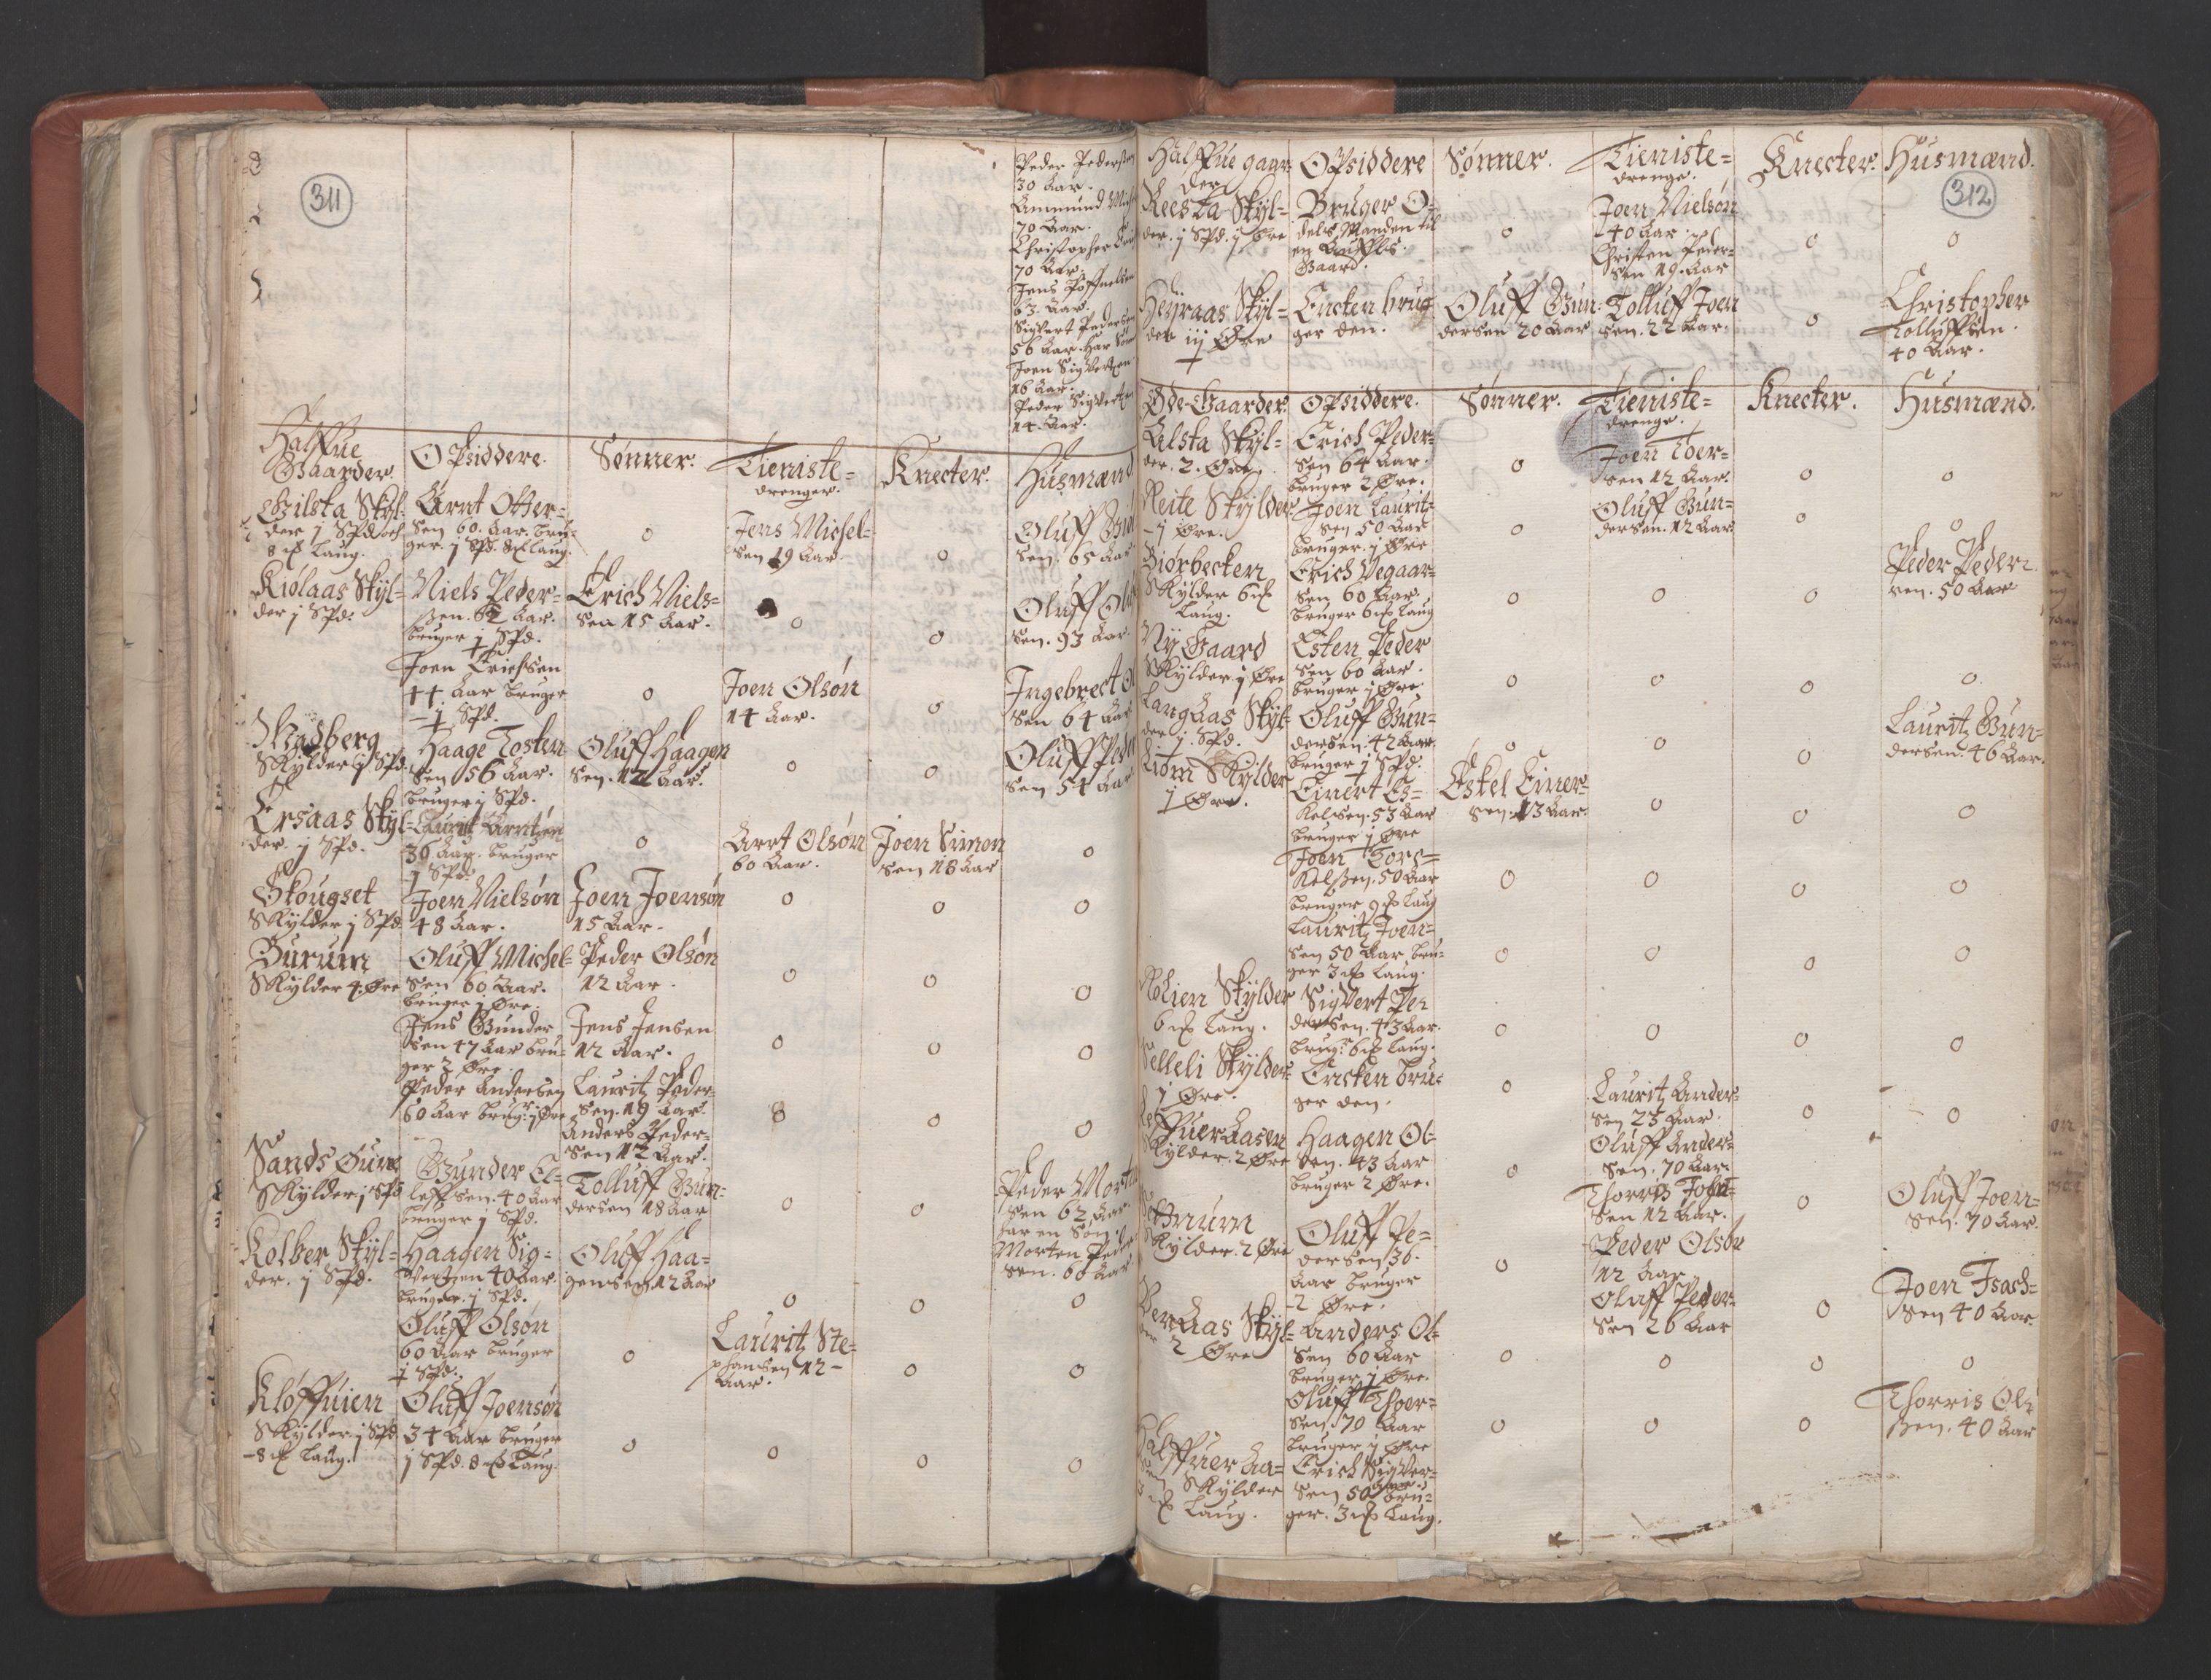 311
Peder Peders
30 Aar.
Ammund
70 Aar.
Christopher
70 Aar.
Jens
63. Aar.
Sigvert Peders
56 Aar. har
Joen Sigvertsen
16 Aar.
Peder Sigverts
14. Aar.
Halffue
Gaarder.
Opsiddere.
Sønner.
Tieniste=
drenger.
Knecter.
Husmænd
Gilsta Skyl=
der j Spd. och
8 Laug.
Arnt Otter=
sen 60. Aar. bru=
ger. j Spd. 8 laug.
o
Jens Michel=
sen 19 Aar.
o
Oluff
sen. 65 Aar
Kiølaas Skyl=
der j Spd.
Niels Peder=
sen. 62 Aar.
bruger ½ Spd.
Erich Niels=
sen 15 Aar.
o
o
Oluff
sen. 93 Aar.
Joen Erichsen
44 Aar bruger
½ Spd.
o
Joen Olsøn
14 Aar.
o
Ingebrect
sen 64 Aar
Skylder j Spd.
Haage Tosten
sen 56 Aar.
bruger j Spd.
Oluff Haagen
sen. 12 Aar.
o
o
Oluff
sen 54 Aar
Ersaas Skyl=
der. j Spd.
Laurit Arntzen
36 Aar. bruger
j Spd.
o
Arnt Olsøn
60 Aar.
Joen Simon
sen 18 Aar
o
Skougset
Skylder j Spd.
Joen Nielsøn
48 Aar.
Joen Joensøn
15 Aar.
o
o
o
Burum
Skylder 4. Øre
Oluff Michel=
sen 60 Aar.
bruger j Øre.
Peder Olsøn
12 Aar.
o
o
o
Jens Gunder
sen 47 Aar bru=
ger 2 Øre.
Jens Jensen
12 Aar.
o
o
o
Peder Andersen
60 Aar brugr. j Øre
Lauritz Peder
sen. 19 Aar.
Anders Peder=
sen 12 Aar.
o
o
Sands Øure
Skylder j Spd
Gunder El=
leffsen. 40 Aar
bruger j Spd.
Tolluff Gun=
dersen 18 Aar
o
o
Peder Mort
sen 62 Aar.
har en Søn
Morten Peder
sen.
Kolber Skyl=
der. j Spd.
Haagen Sig=
vertzen 40 Aar.
bruger. ½ Spd.
Oluff Haa=
gensen 12 Aar
o
o
o
Oluff Olsøn
60 Aar bruger
½ Spd.
o
Lauritz Ste=
phansen 12
Aar.
o
o
Kløffuien
Skylder j Spd
8 laug.
Oluff Joensøn
34 Aar bruger
j Spd. 8 Laug.
o
o
o
o
312
Halffue gaar
der
Opsiddere
Sønner.
Tieniste=
drenge.
Knecter.
Husmænd.
Reesta Skyl=
der. j Spd. j Øre
Bruger O=
dels Manden til
en
Gaard.
o
Joen Nielsøn
40 Aar.
Christen Peder=
sen 19. Aar
o
o
Heyraas Skyl=
der iij Øre
Encken brug
ger den.
Oluff Gun=
dersen 20 Aar
Tolluff Joen
sen. 22 Aar.
o
Christopher
Tolluffsen.
40 Aar.
Øde-Gaarder.
Opsiddere.
Sønner.
Tieniste=
drenge.
Knecter.
Husmænd.
Alsta Skyl=
der. 2. Øre.
Erich Peder=
sen 64 Aar.
bruger 2 Øre.
o
Joen Toer=
sen 12 Aar.
o
o
Reite Skylder
j Øre.
Joen Laurit=
sen 50 Aar
bruger. j Øre
o
Oluff Gun=
dersen. 12 Aar
o
o
Biørbecken
Skylder 6
Laug.
Erich Vegaar=
sen 60 Aar.
bruger 6 laug
o
o
o
Peder Peder
sen. 50 Aar
Ny Gaard
Skylder. j Øre
Esten Peder
sen 60 Aar.
bruger j Øre.
o
o
o
o
LangAas Skyl
der. ½. Spd.
Oluff Gun=
dersen. 42 Aar.
bruger ½ Spd.
o
o
o
Lauritz Gun=
dersen. 46 Aar.
Liøm Skylder
j Øre.
Einert Es=
kelsen. 53 Aar
bruger ½ Øre
Eskel Einer=
sen. 13 Aar.
o
o
o
Joen Tore=
kelsen. 50 Aar
bruger 9 laug
o
o
o
o
Lauritz Joen=
sen 50 Aar bru=
ger 3 laug.
o
o
o
o
Skylder
6 laug.
Sigvert Pe
dersen. 43 Aar.
brugr. 6 laug.
o
o
o
o
Selleli Skylder
j Øre.
Encken bru=
ger den.
o
Lauritz Ander=
sen 23 Aar.
o
o
Skylder. 2 Øre
Haagen Ol=
sen. 43 Aar
bruger 2 Øre.
o
Oluff Ander=
sen. 70 Aar.
Thorris John=
sen 12 Aar.
o
Oluff Joen=
sen. 70 Aar.
Skylder. 2 Øre
Oluff Pe=
dersen 36.
Aar bruger
2 Øre.
o
Peder Olsøn
12 Aar
Oluff Peder=
sen 26 Aar
o
Joen Isach=
sen 40 Aar
Skyl=
2 Øre
Anders Ol=
sen 60 Aar
bruger. j Øre.
o
o
o
o
Oluff Thoer=
sen. 70 Aar
bruger j Øre
o
o
o
Thorris Ol
sen. 40 Aar
Halffuer Aa=
sen Skylder
3 Laug.
Erich Sigver=
sen 50 Aar bru=
ger. 3 Laug.